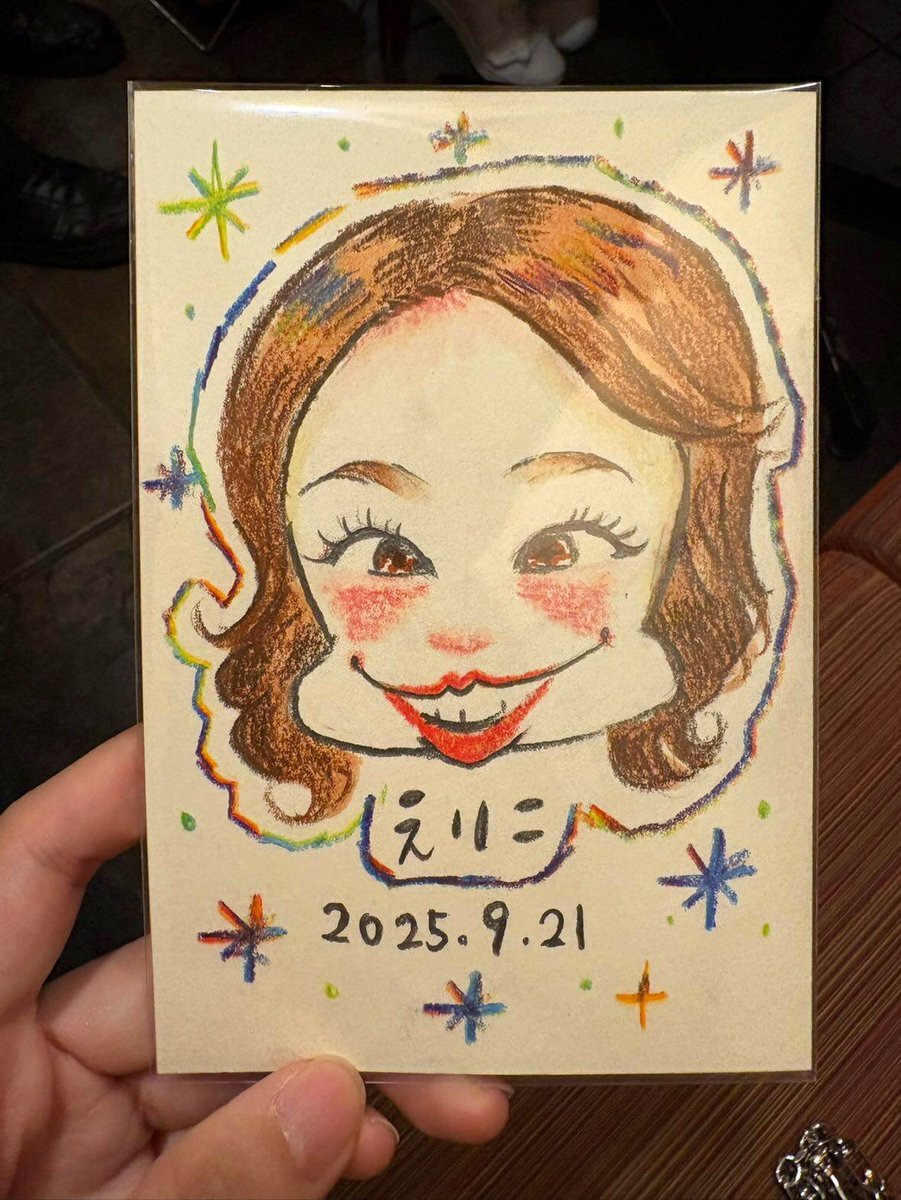 えりこ
2025.9.21